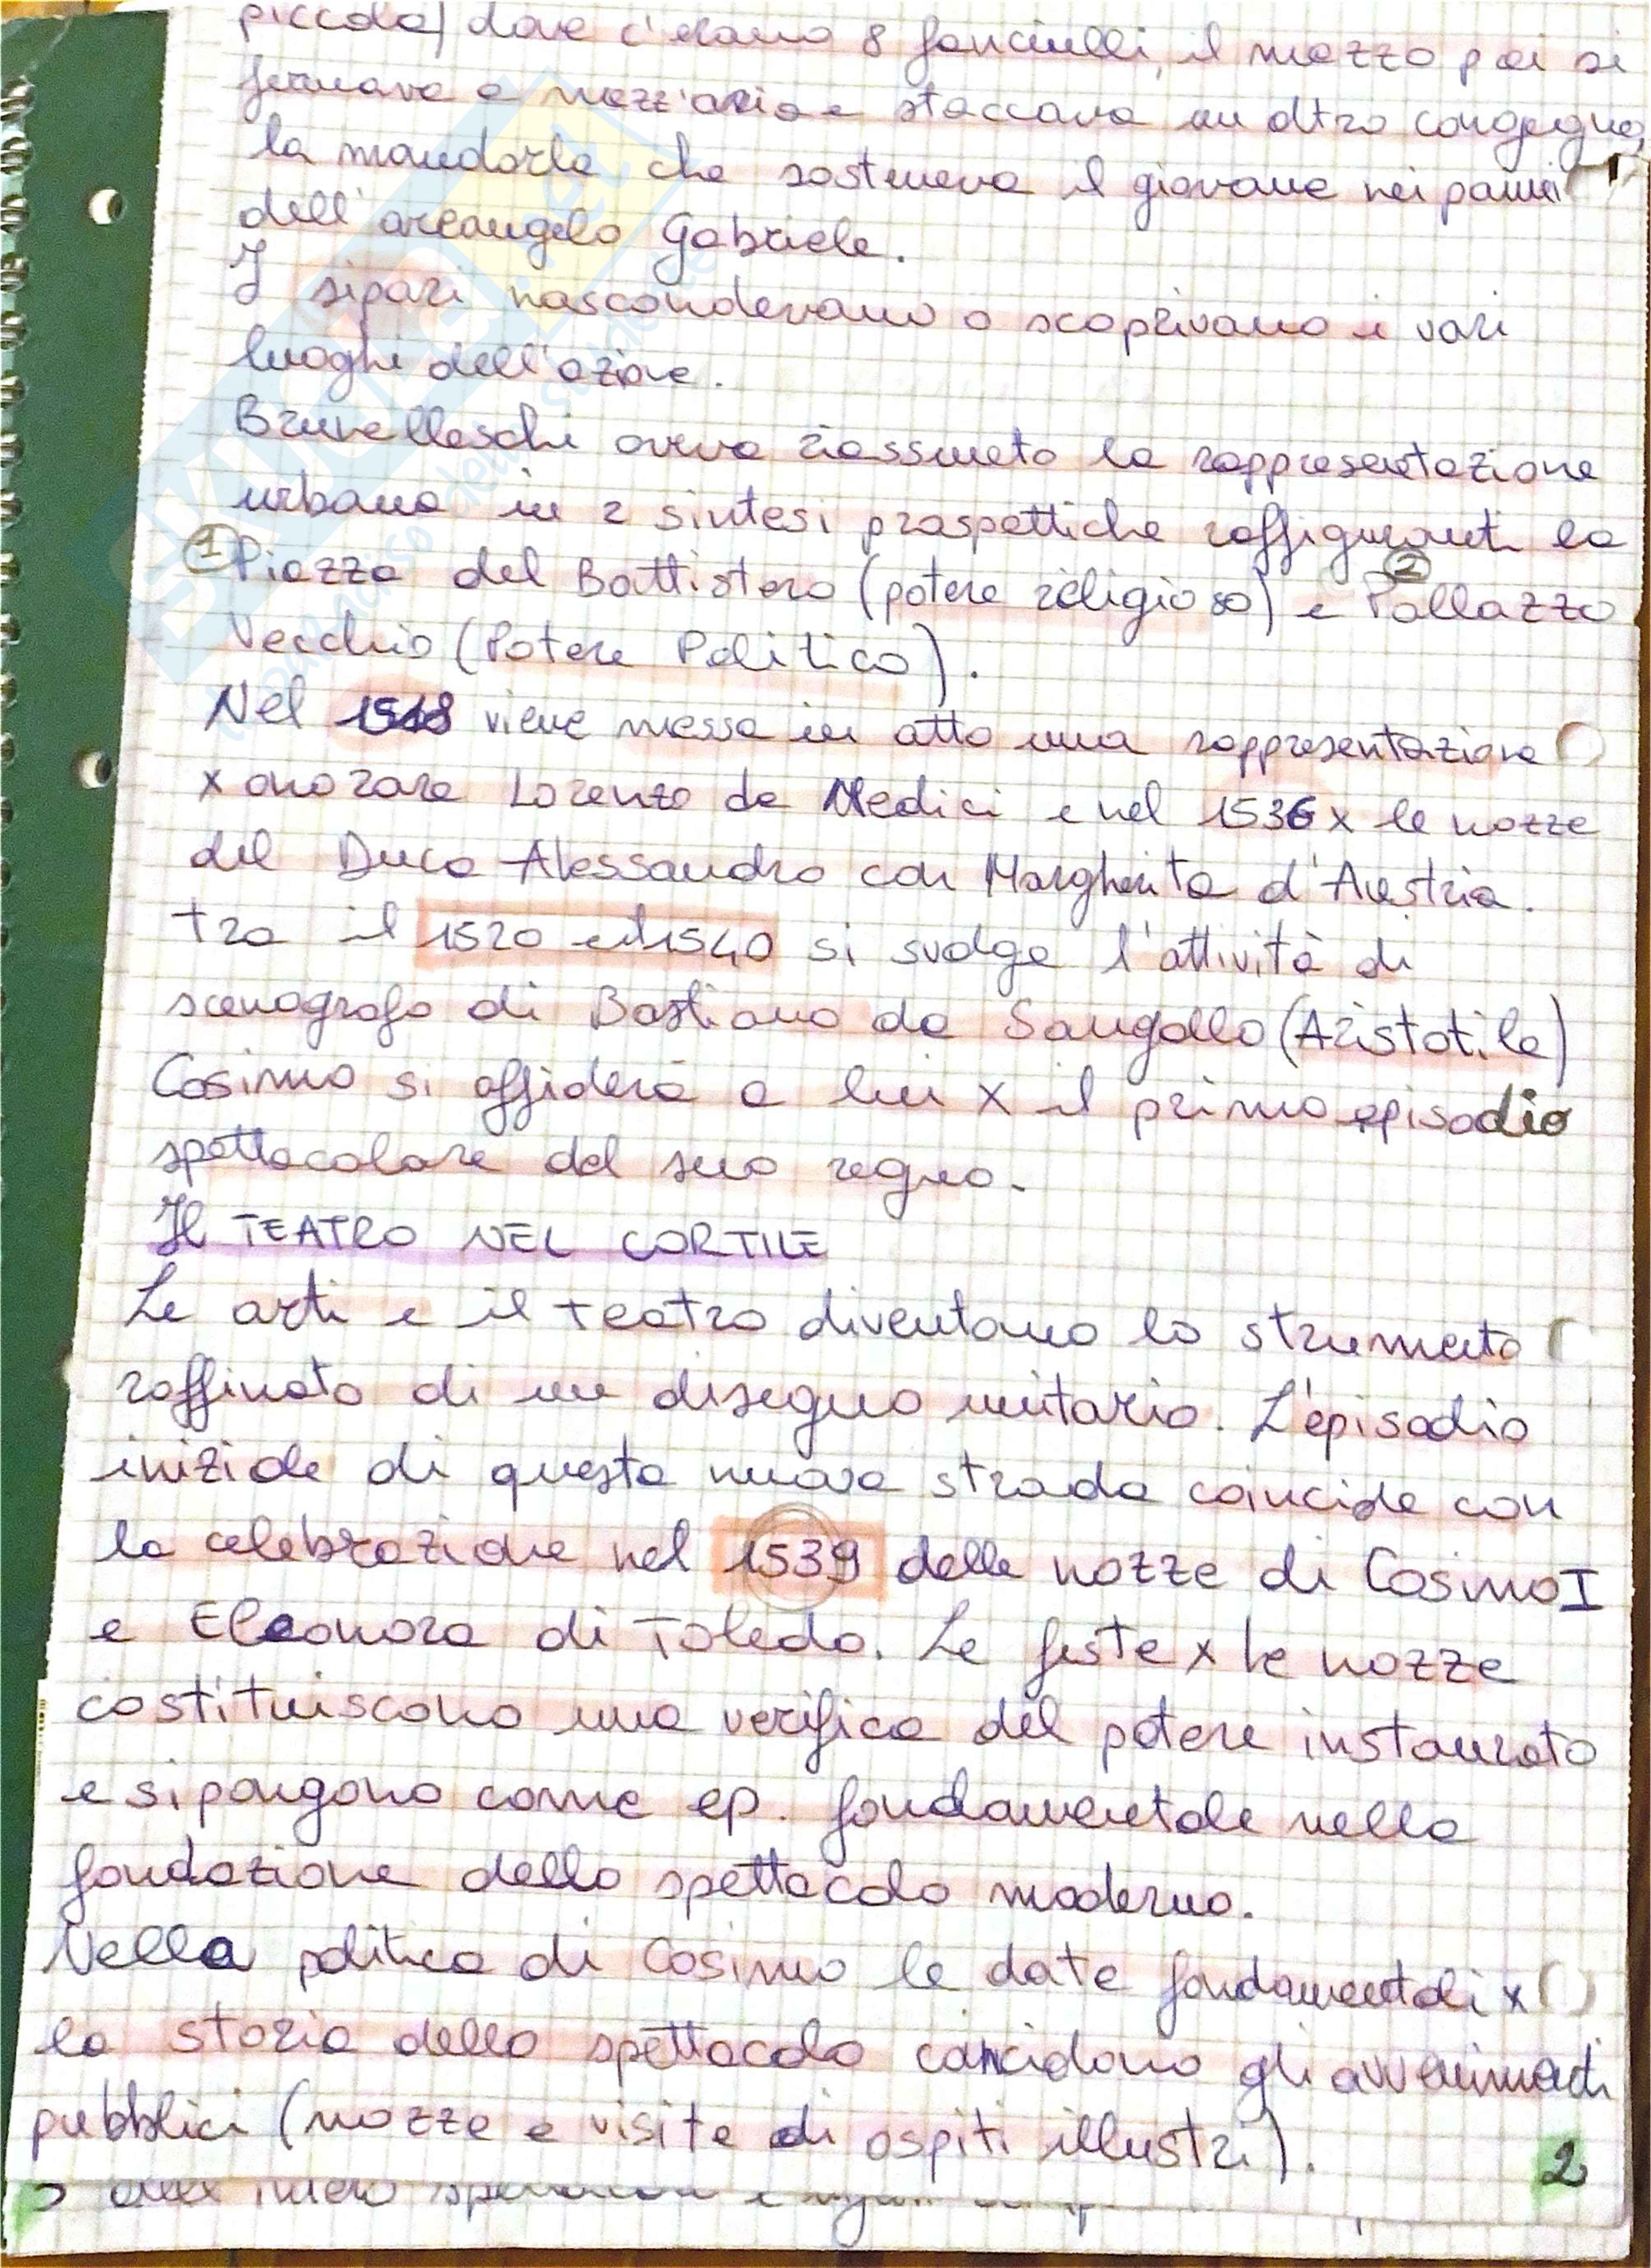 piccola) dove c'erano 8 fanciulli, il mazzo poi si
fermava a mezz'aria e staccava un altro congegno,
la mandorla che sosteneva il giovane nei panni
dell'arcangelo Gabriele.
I sipari nascondevano o scoprivano i vari
luoghi dell'azione.
Brunelleschi aveva riassunto la rappresentazione
urbana in 2 sintesi prospettiche raffiguranti la
① Piazza del Battistero (potere religioso) e ② Pallazzo
Vecchio (Potere Politico).
Nel 1518 viene messa in atto una rappresentazione
x onorare Lorenzo de Medici e nel 1536 x le nozze
del Duca Alessandro con Margherita d'Austria.
Tra il 1520 e il 1540 si svolge l'attività di
scenografo di Bastiano da Sangallo (Aristotile)
Cosimo si affiderà a lui x il primo episodio
spettacolare del suo regno.
Il TEATRO NEL CORTILE
Le arti e il teatro diventano lo strumento
raffinato di un disegno unitario. L'episodio
iniziale di questa nuova strada coincide con
la celebrazione nel 1539 delle nozze di Cosimo I
e Eleonora di Toledo. Le feste x le nozze
costituiscono una verifica del potere instaurato
e si pongono come ep. fondamentale nella
fondazione dello spettacolo moderno.
Nella politica di Cosimo le date fondamentali x
la storia dello spettacolo coincidono gli avvenimenti
pubblici (nozze e visite di ospiti illustri).
2